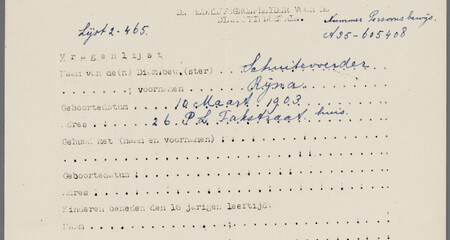 DE GEMACHTIGDE VOOR DE
Lijst 2-465.
Nummer Persoonsbewijs.
A35-605408
V r a g e n l i j s t
Naam van de(n) (ster) Schuitevoerder
" " " " ; voornamen Ryna
Geboortedatum 10 Maart 1903.
Adres 26. P.L. Takstraat huis.
Gehuwd met (naam en voornamen)
Geboortedatum
Adres
Kinderen beneden den 16 jarigen leeftijd:
Naam